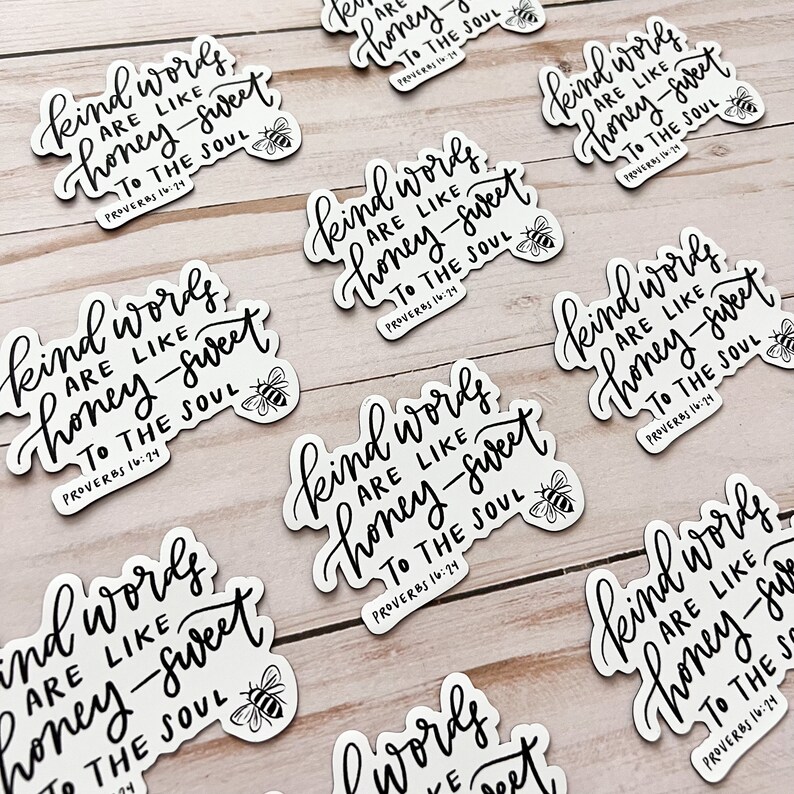 kind
ARE LIKE
honey—sweet
TO THE SOUL
PROVERBS 16:24
kind words
ARE LIKE
honey—sweet
TO THE SOUL
PROVERBS 16:24
kind words
ARE LIKE
honey—sweet
TO THE SOUL
PROVERBS 16:24
kind words
ARE LIKE
honey—sweet
TO THE SOUL
PROVERBS 16:24
kind words
ARE LIKE
honey—sweet
TO THE SOUL
PROVERBS 16:24
kind words
ARE LIKE
honey—sweet
TO THE SOUL
PROVERBS 16:24
kind words
ARE LIKE
honey—sweet
TO THE SOUL
PROVERBS 16:24
kind words
ARE LIKE
honey—sweet
TO THE SOUL
PROVERBS 16:24
kind words
ARE LIKE
honey—sweet
TO THE SOUL
words
ARE LIKE
sweet